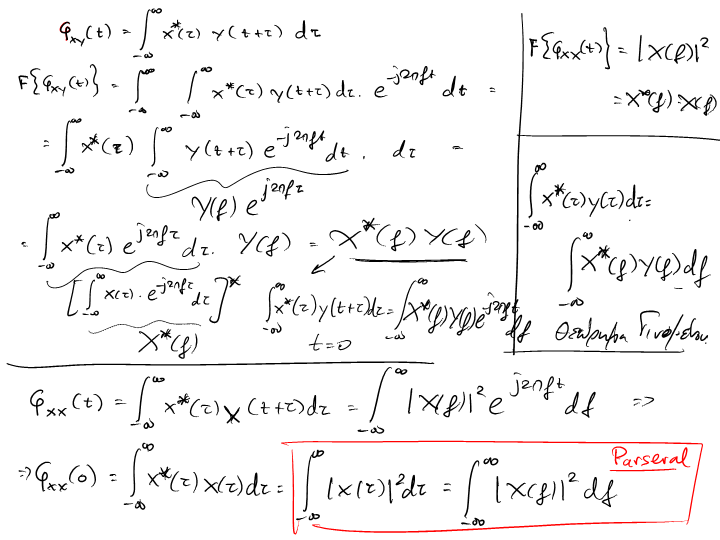 φxy(t) = ∫_{-∞}^{∞} x*(τ) y(t+τ) dτ
F{φxy(t)} = ∫_{-∞}^{∞} ∫_{-∞}^{∞} x*(τ) y(t+τ) dτ. e^{-j2πft} dt =
= ∫_{-∞}^{∞} x*(τ) ∫_{-∞}^{∞} y(t+τ) e^{-j2πft} dt. dτ =
Y(f) e^{j2πfτ}
= ∫_{-∞}^{∞} x*(τ) e^{j2πfτ} dτ. Y(f) = X*(f) Y(f)
[∫_{-∞}^{∞} x(τ). e^{-j2πfτ} dτ]*
X*(f)
∫_{-∞}^{∞} x*(τ) y(t+τ) dτ = ∫_{-∞}^{∞} X*(f) Y(f) e^{-j2πft} df
t=0
F{φxx(t)} = |X(f)|²
= X*(f) . X(f)
∫_{-∞}^{∞} x*(τ) y(τ) dτ =
∫_{-∞}^{∞} X*(f) Y(f) df
Θεώρημα Γινομένου
φxx(t) = ∫_{-∞}^{∞} x*(τ) x(t+τ) dτ = ∫_{-∞}^{∞} |X(f)|² e^{j2πft} df =>
=> φxx(0) = ∫_{-∞}^{∞} x*(τ) x(τ) dτ = ∫_{-∞}^{∞} |x(τ)|² dτ = ∫_{-∞}^{∞} |X(f)|² df
Parseval